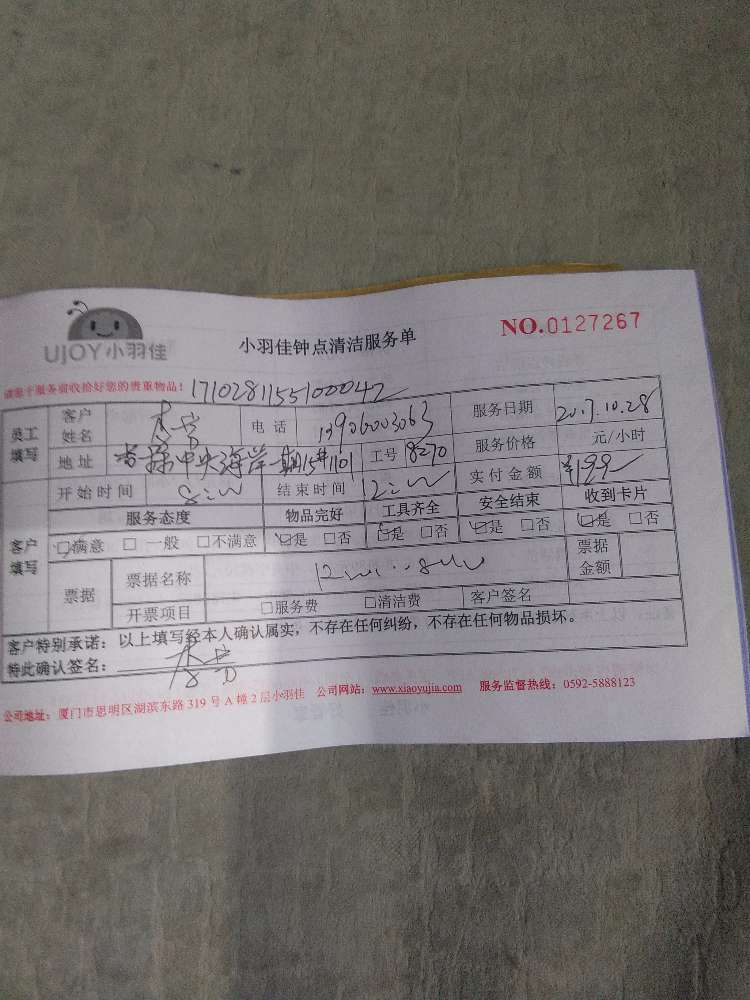 UJOY小羽佳
小羽佳钟点清洁服务单
NO.0127267
请您于服务前收拾好您的贵重物品! 1710281155100042
员工填写 客户姓名 电话 13906003063 服务日期 2017.10.28
地址 中央海岸一期15#1101 工号 8270 服务价格 元/小时
开始时间 8:00 结束时间 12:00 实付金额 ¥199
客户填写 服务态度 物品完好 工具齐全 安全结束 收到卡片
☑满意 □一般 □不满意 ☑是 □否 ☑是 □否 ☑是 □否 ☑是 □否
票据 票据名称 票据金额
开票项目 □服务费 □清洁费 客户签名
客户特别承诺：以上填写经本人确认属实，不存在任何纠纷，不存在任何物品损坏。
特此确认签名：
公司地址：厦门市思明区湖滨东路 319 号 A 幢 2 层小羽佳 公司网站：www.xiaoyujia.com 服务监督热线：0592-5888123